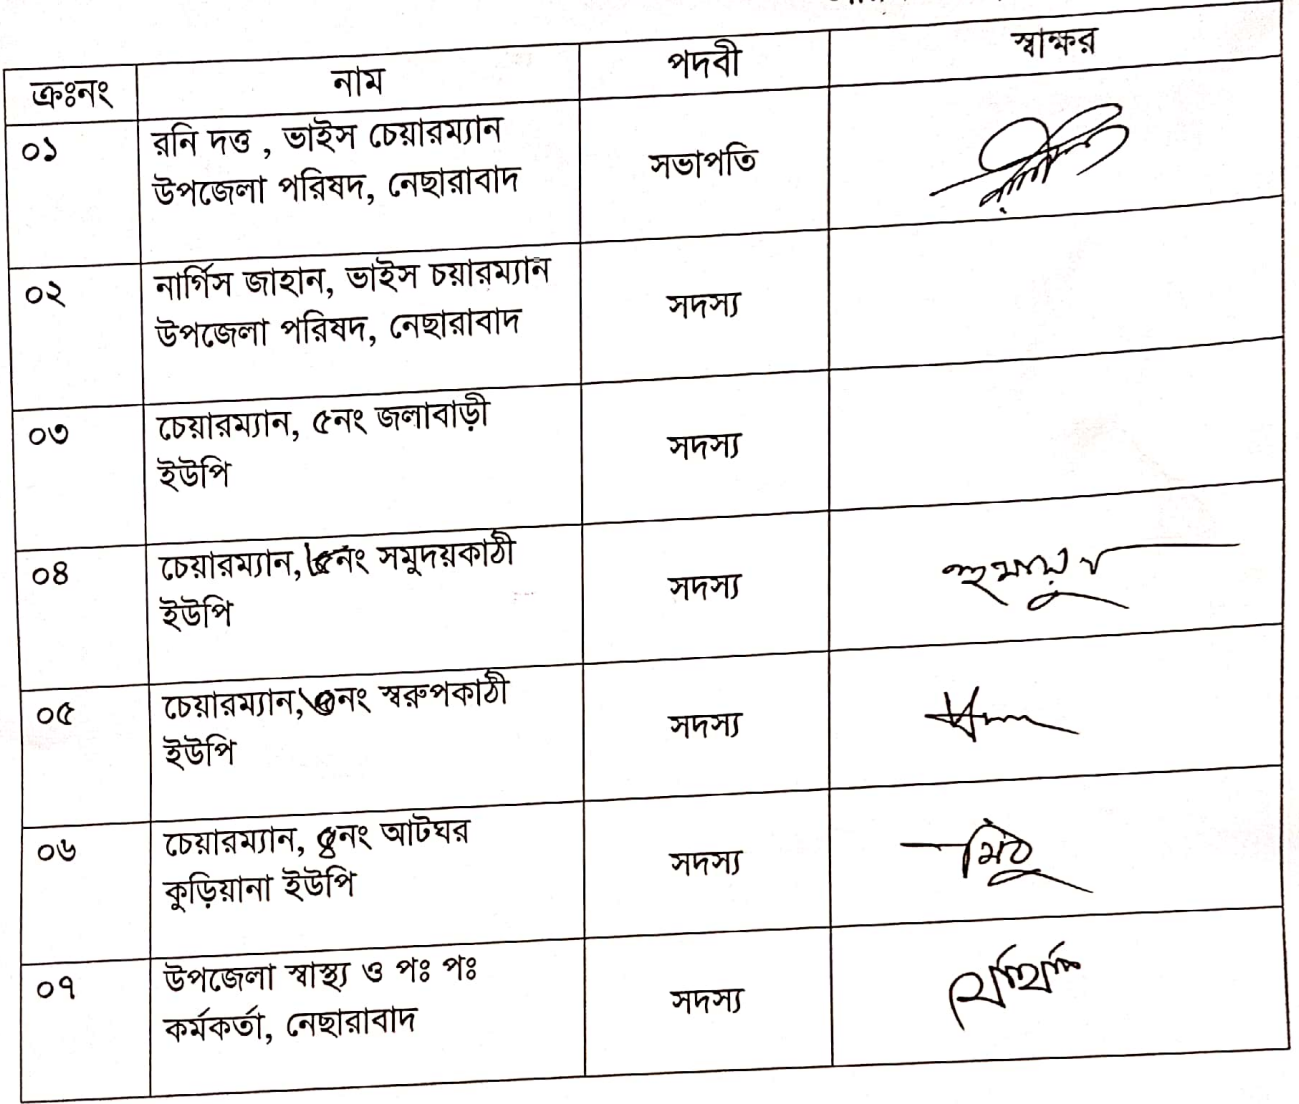 ক্রঃনং নাম পদবী স্বাক্ষর
০১ রনি দত্ত , ভাইস চেয়ারম্যান
উপজেলা পরিষদ, নেছারাবাদ সভাপতি
০২ নার্গিস জাহান, ভাইস চয়ারম্যান
উপজেলা পরিষদ, নেছারাবাদ সদস্য
০৩ চেয়ারম্যান, ৫নং জলাবাড়ী
ইউপি সদস্য
০৪ চেয়ারম্যান, নং সমুদয়কাঠী
ইউপি সদস্য হুমায়ুন
০৫ চেয়ারম্যান, নং স্বরুপকাঠী
ইউপি সদস্য
০৬ চেয়ারম্যান, নং আটঘর
কুড়িয়ানা ইউপি সদস্য মিঠু
০৭ উপজেলা স্বাস্থ্য ও পঃ পঃ
কর্মকর্তা, নেছারাবাদ সদস্য